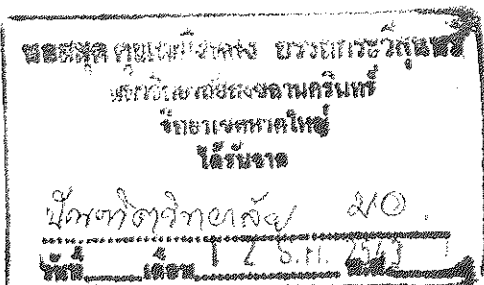 หอสมุด คุณหญิงหลง อรรถกระวีสุนทร
มหาวิทยาลัยสงขลานครินทร์
วิทยาเขตหาดใหญ่
ได้รับจาก
บัณฑิตวิทยาลัย มอ.
วันที่ เดือน 12 ธ.ค.